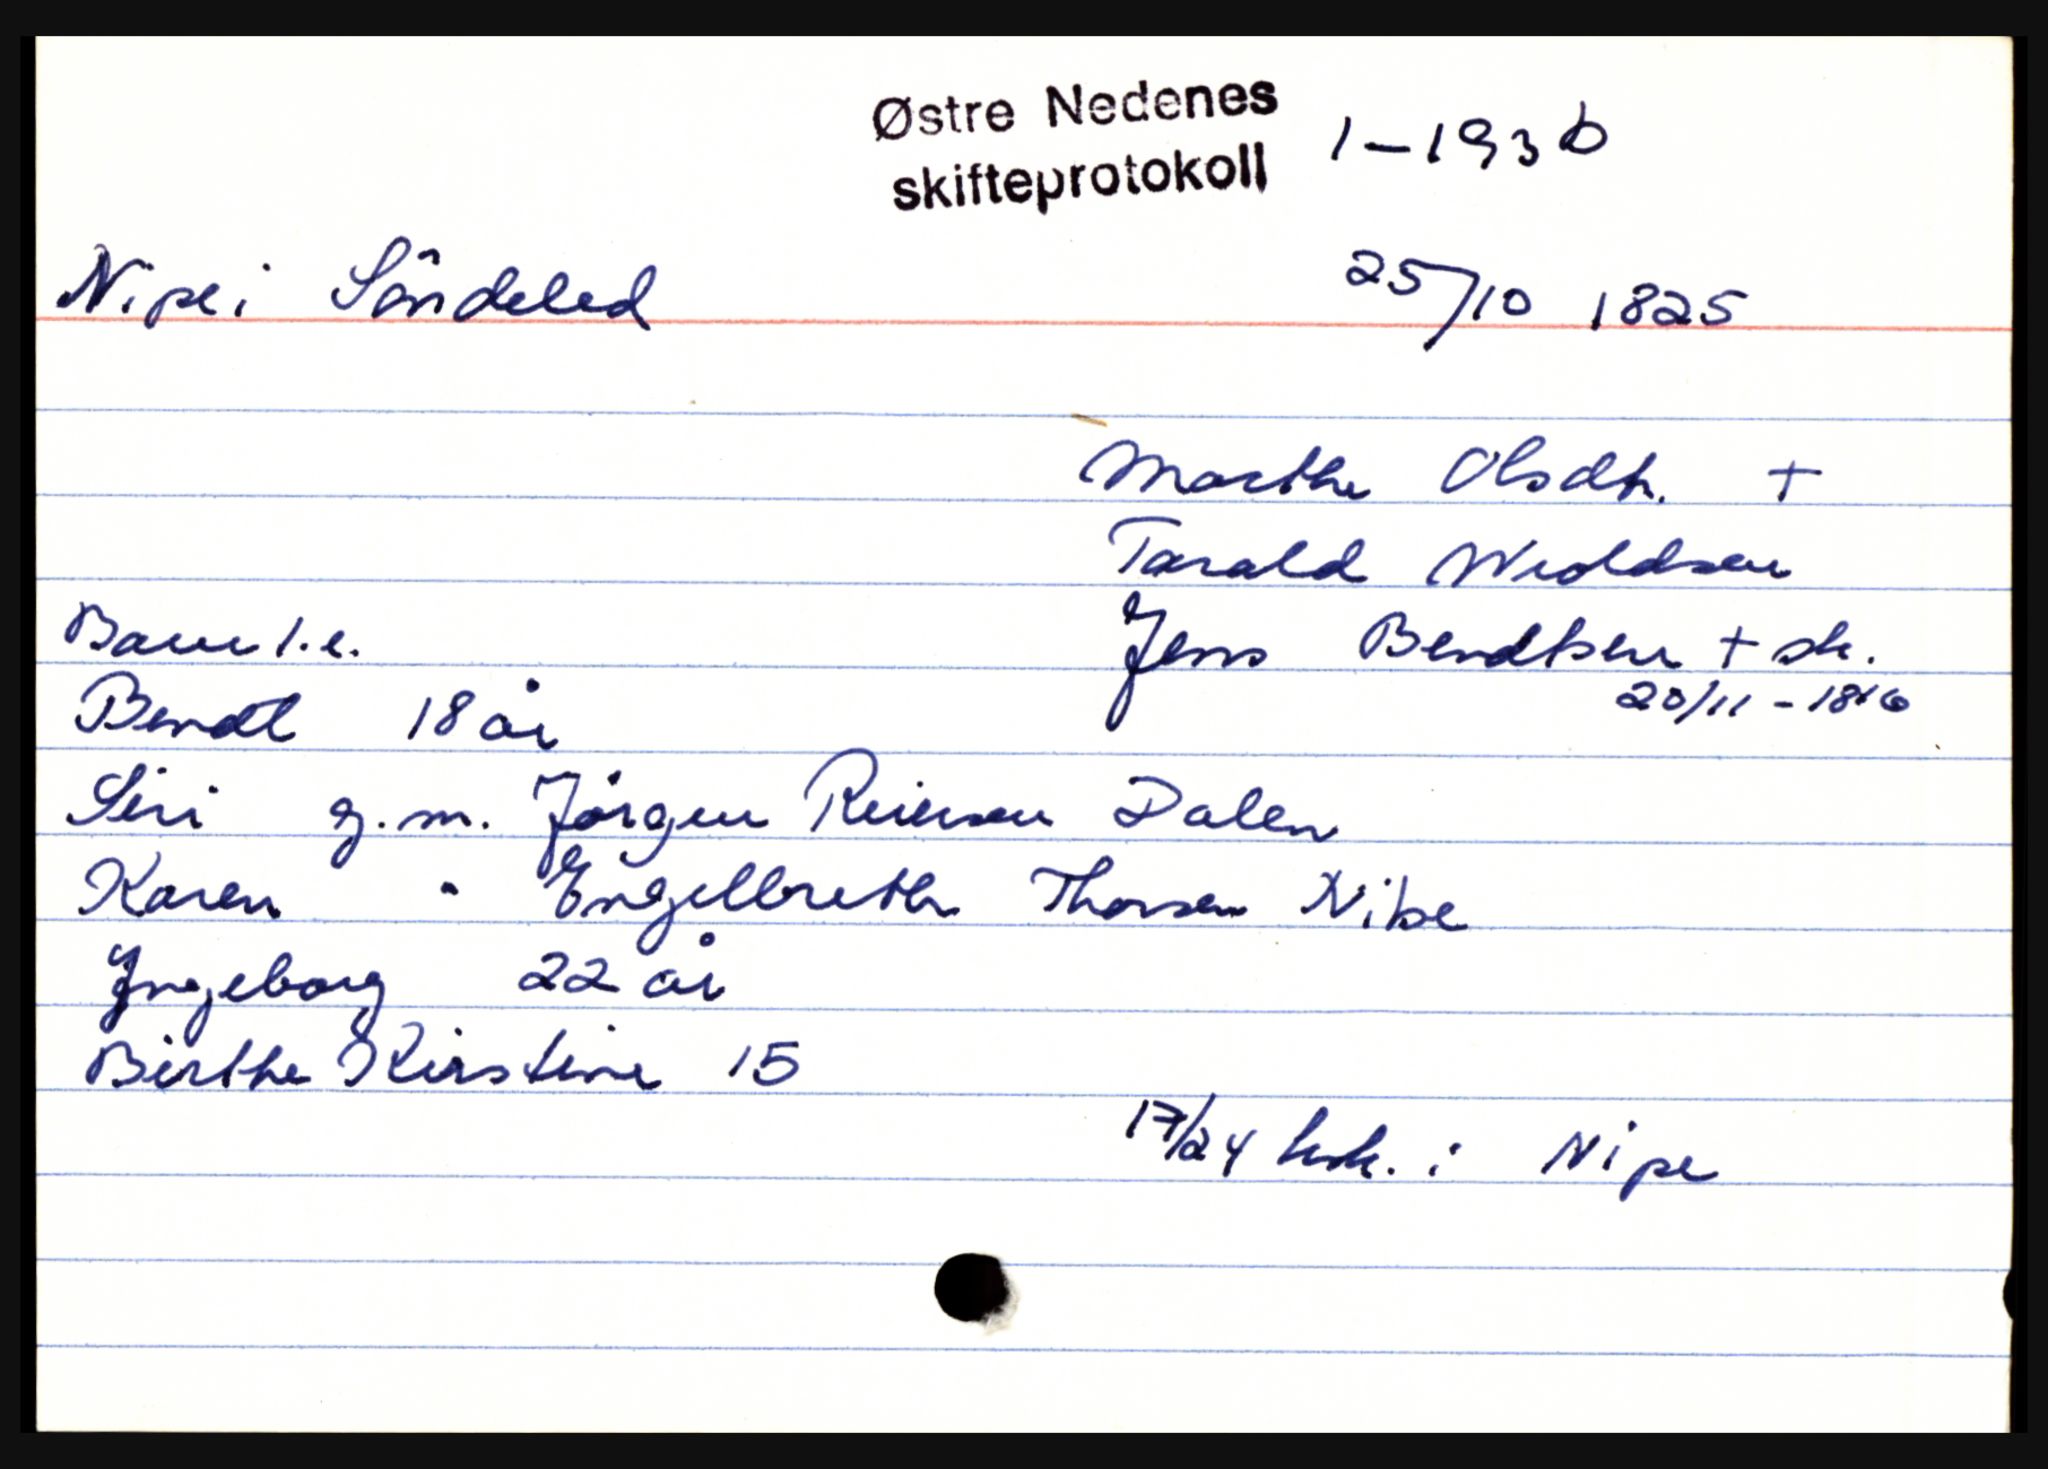 Østre Nedenes
skifteprotokoll 1-193 b
Nipe i Söndeled 25/10 1825
Marthe Olsdtr. +
Tarald Wroldsen
Barn 1.e. Jens Bendtsen + sk.
20/11 - 1816
Bendt 18 år
Siri g.m. Jörgen Reiersen Dalen
Karen " Engelbreth Thorsen Nibe
Ingeborg 22 år
Birthe Kirstine 15
17/24 hd. i Nipe